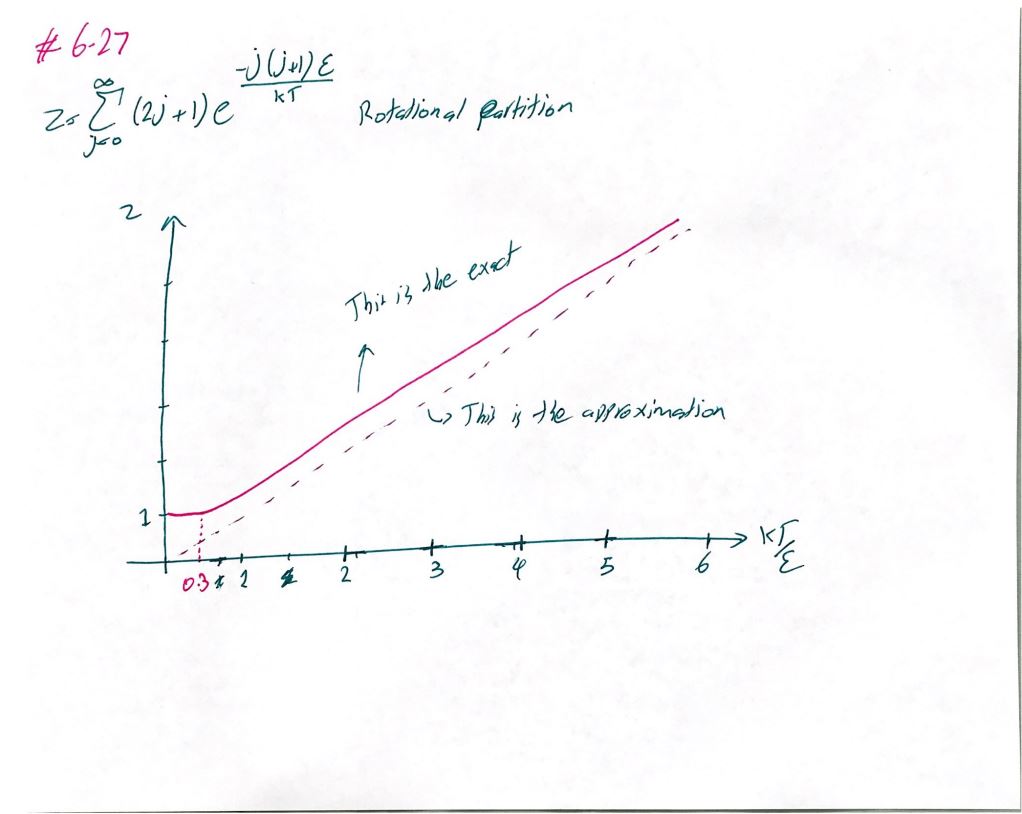 # 6-27
Z = ∞ Σ j=0 (2j+1) e^(-j(j+1)ε / kT) Rotational partition
z
This is the exact
↳ This is the approximation
1
kT/ε
0.3 1 2 3 4 5 6